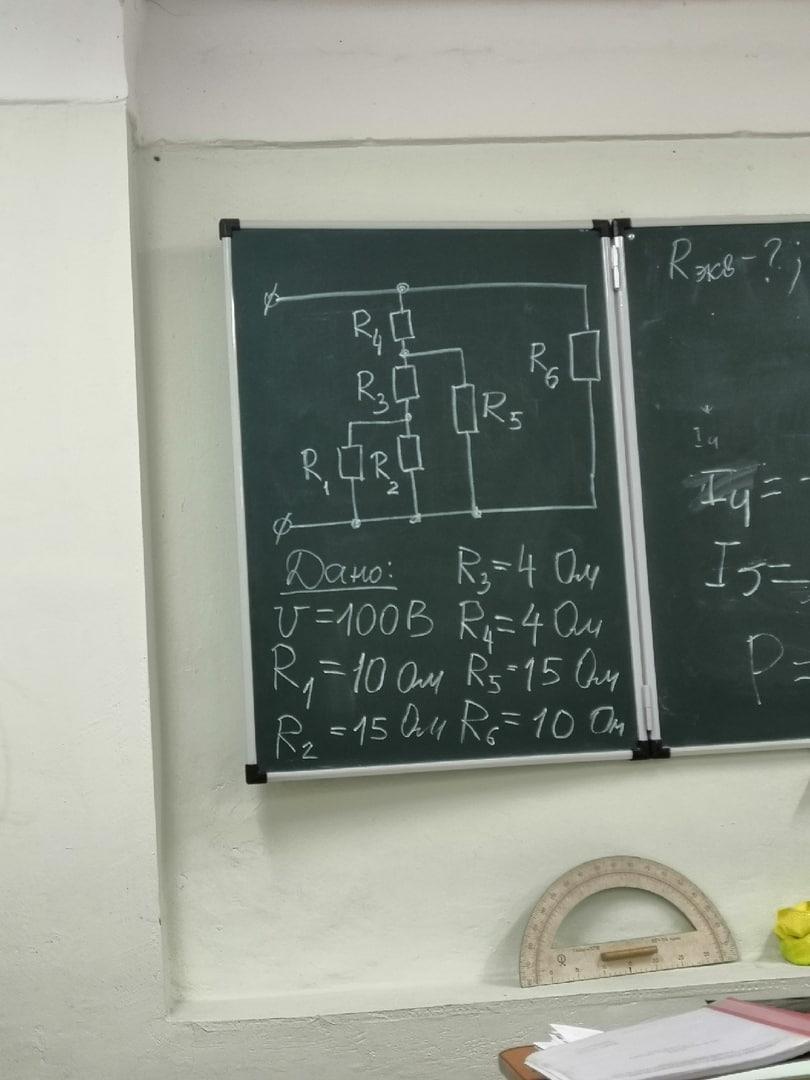 R₄
R₃
R₅
R₆
R₁
R₂
Дано:
R₃=4 Ом
U=100В
R₄=4 Ом
R₁=10 Ом
R₅=15 Ом
R₂=15 Ом
R₆=10 Ом
Rэкв-?;
I₄
I₄=
I₅=
P=